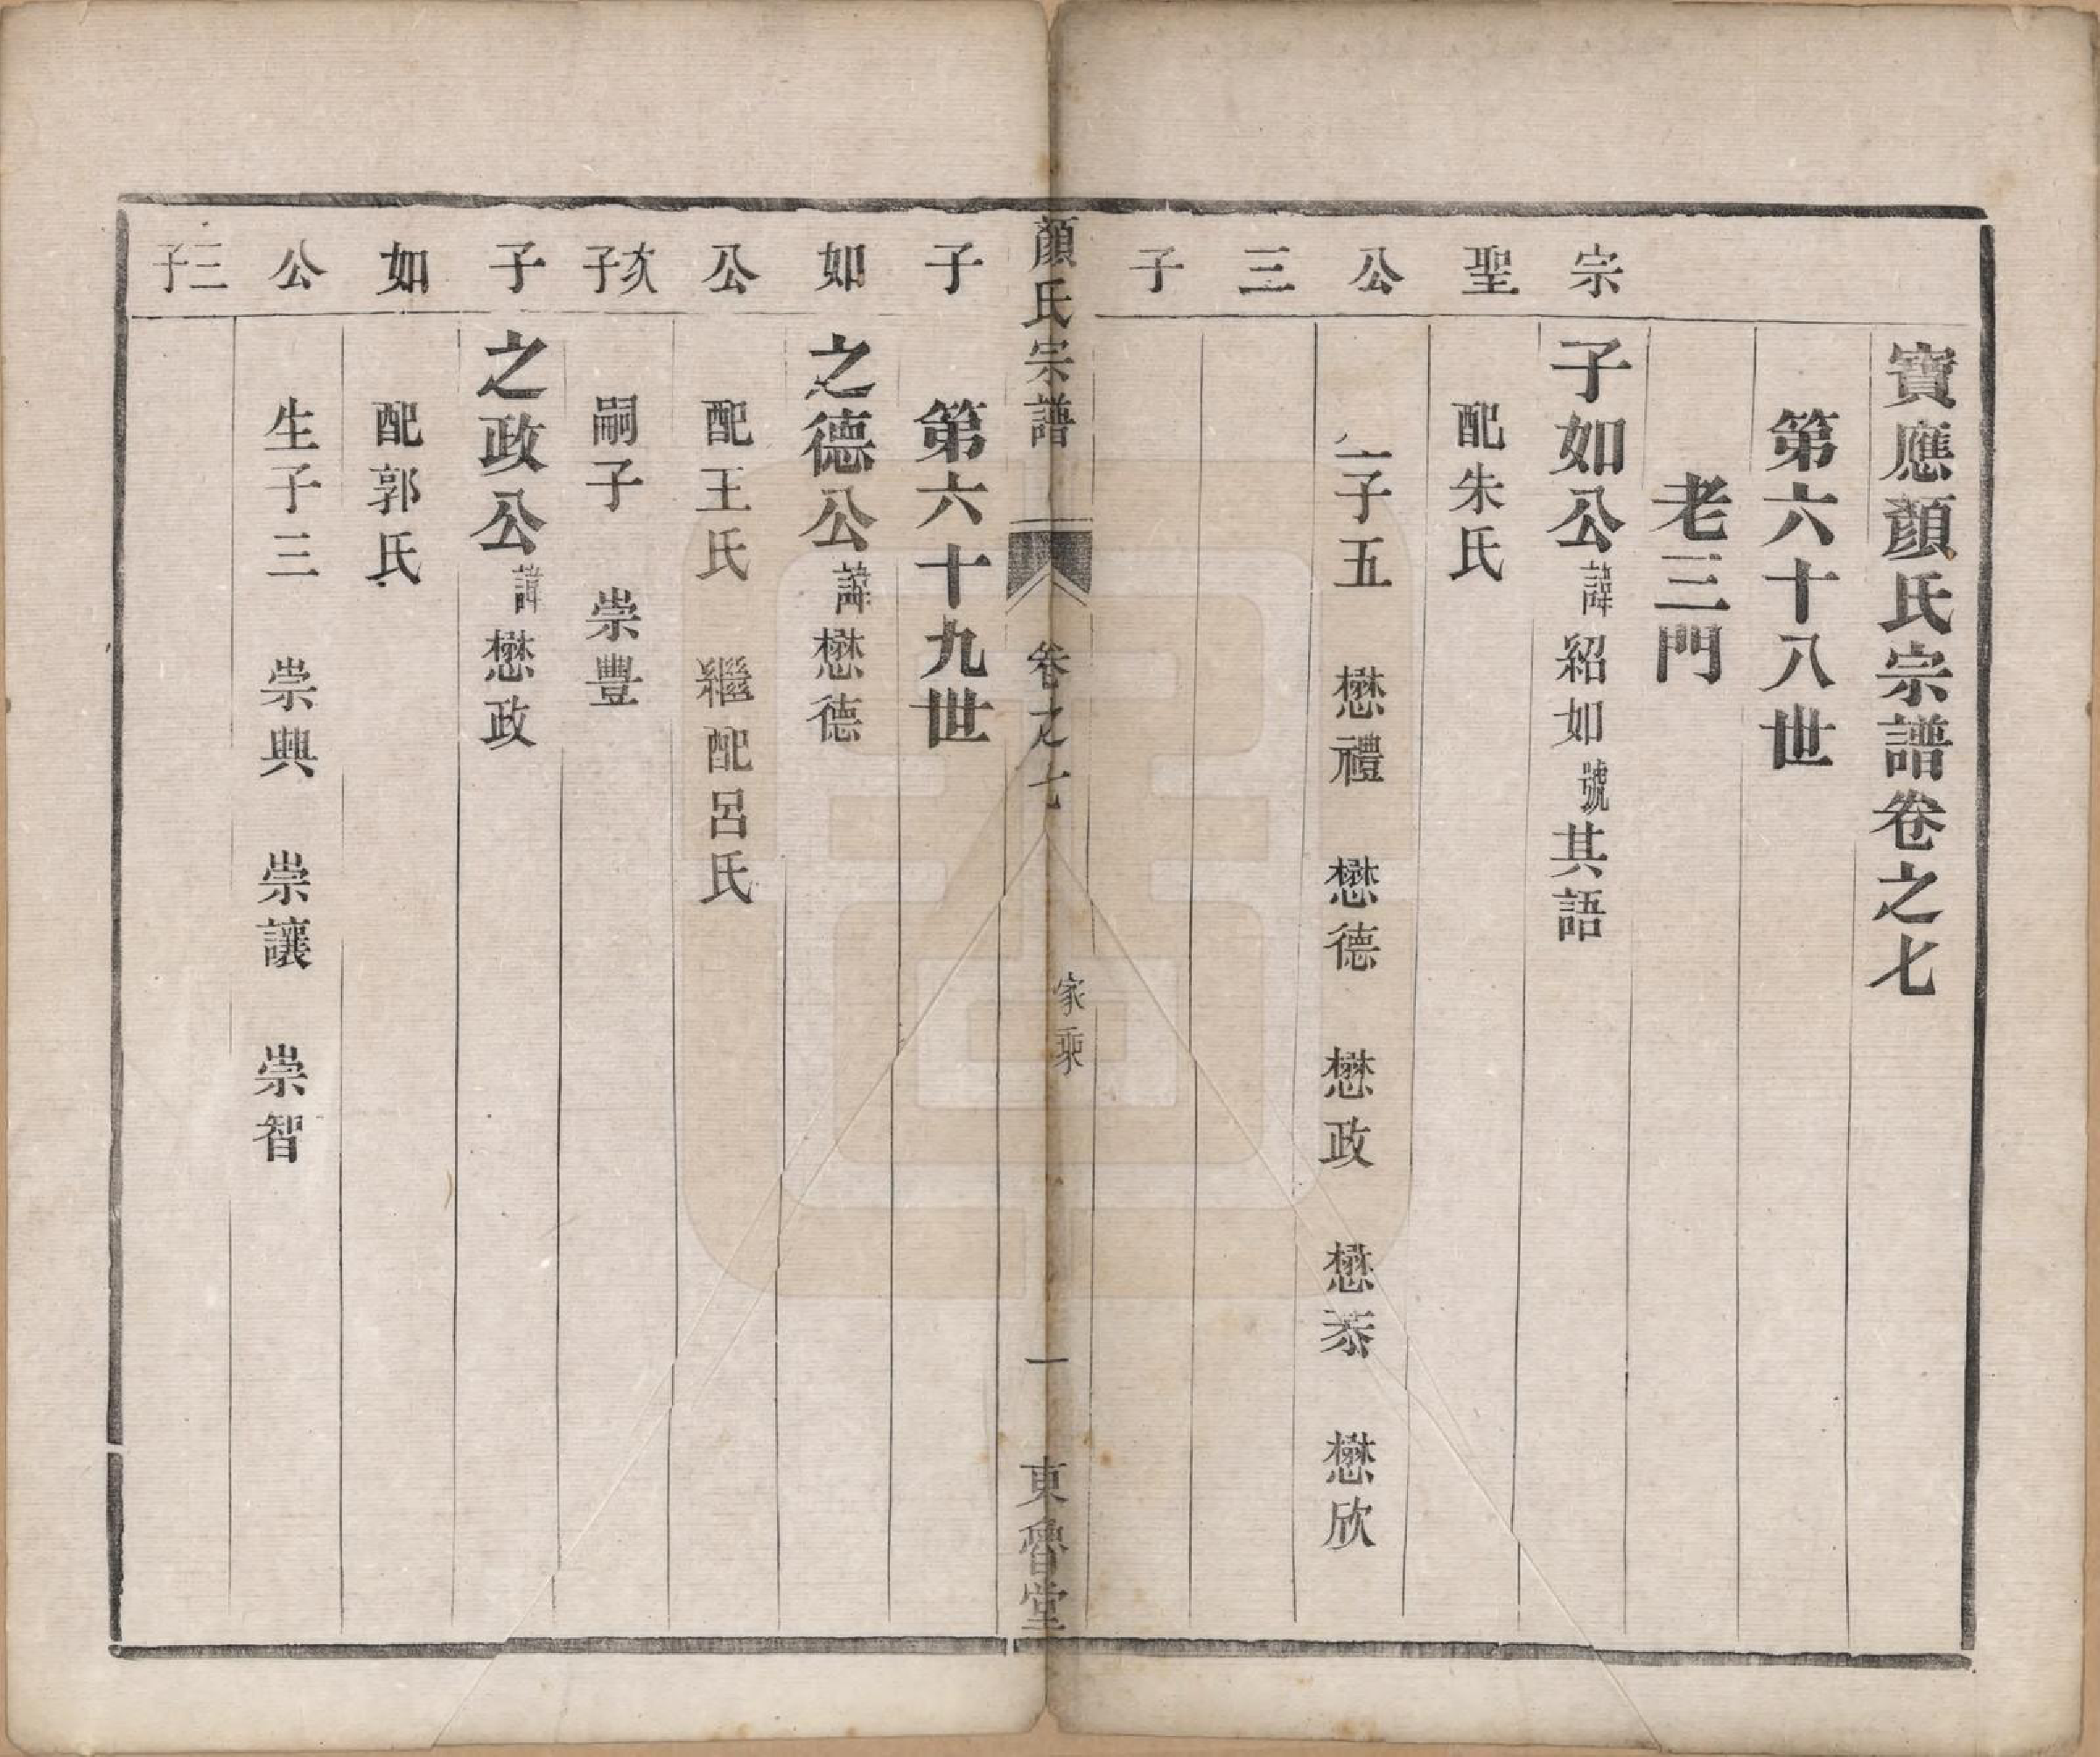 寶應顏氏宗譜卷之七
第六十八世
老三門
宗
子如公諱紹如號其語
聖
配朱氏
公
子五 懋禮 懋德 懋政 懋恭 懋欣
三
子
顏氏宗譜 卷之七 家乘 一 東魯堂
子
第六十九世
如
之德公諱懋德
公
配王氏 繼配呂氏
次子
嗣子 崇豐
子
之政公諱懋政
如
配郭氏
公
生子三 崇興 崇讓 崇智
三子